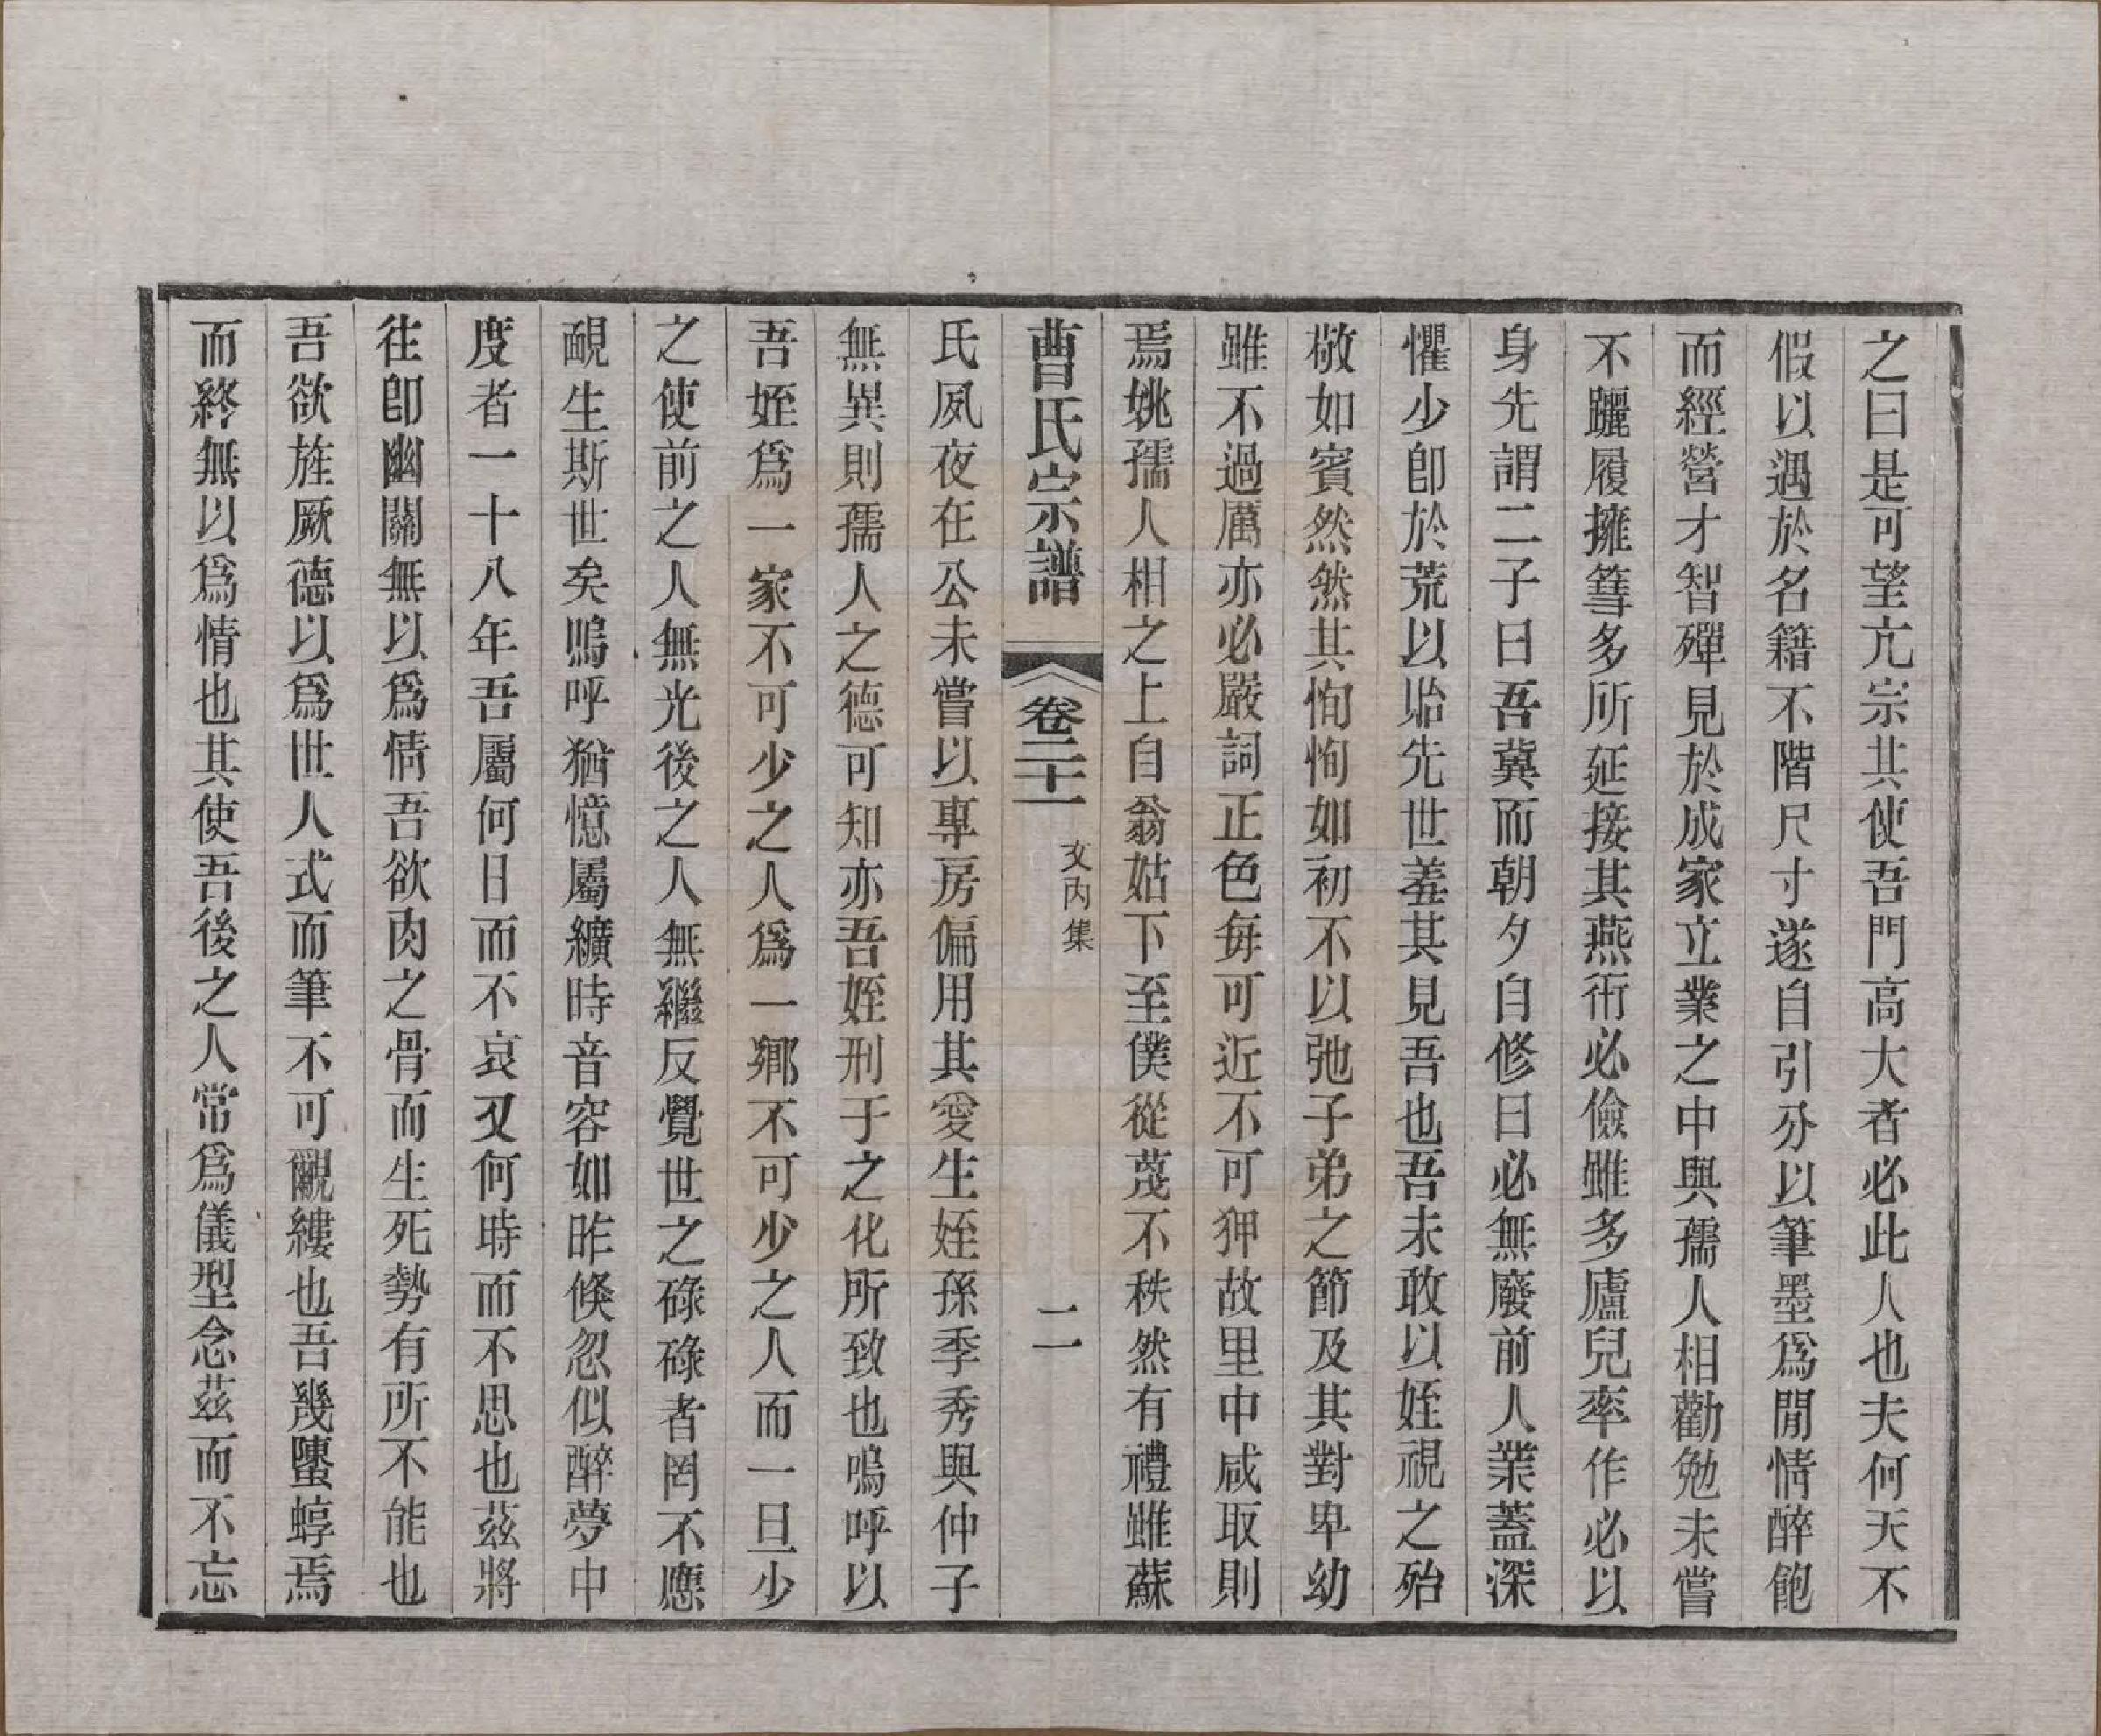 之曰是可望亢宗其使吾門高大者必此人也夫何天不
假以遇於名籍不階尺寸遂自引分以筆墨爲閒情醉飽
而經營才智殫見於成家立業之中與孺人相勸勉未嘗
不躧履擁篲多所延接其燕衎必儉雖多廬兒率作必以
身先謂二子曰吾冀而朝夕自修曰必無廢前人業蓋深
懼少卽於荒以貽先世羞其見吾也吾未敢以姪視之殆
敬如賓然然其恂恂如初不以弛子弟之節及其對卑幼
雖不過厲亦必嚴詞正色每可近不可狎故里中咸取則
焉姚孺人相之上自翁姑下至僕從蔑不秩然有禮雖蘇
曹氏宗譜 卷二十一 文內集 二
氏夙夜在公未嘗以專房偏用其愛生姪孫季秀與仲子
無異則孺人之德可知亦吾姪刑于之化所致也嗚呼以
吾姪爲一家不可少之人爲一鄉不可少之人而一旦少
之使前之人無光後之人無繼反覺世之碌碌者罔不應
靦生斯世矣嗚呼猶憶屬纊時音容如昨倏忽似醉夢中
度者一十八年吾屬何日而不哀又何時而不思也茲將
往卽幽關無以爲情吾欲肉之骨而生死勢有所不能也
吾欲旌厥德以爲世人式而筆不可覼縷也吾幾蠠蜳焉
而終無以爲情也其使吾後之人常爲儀型念茲而不忘